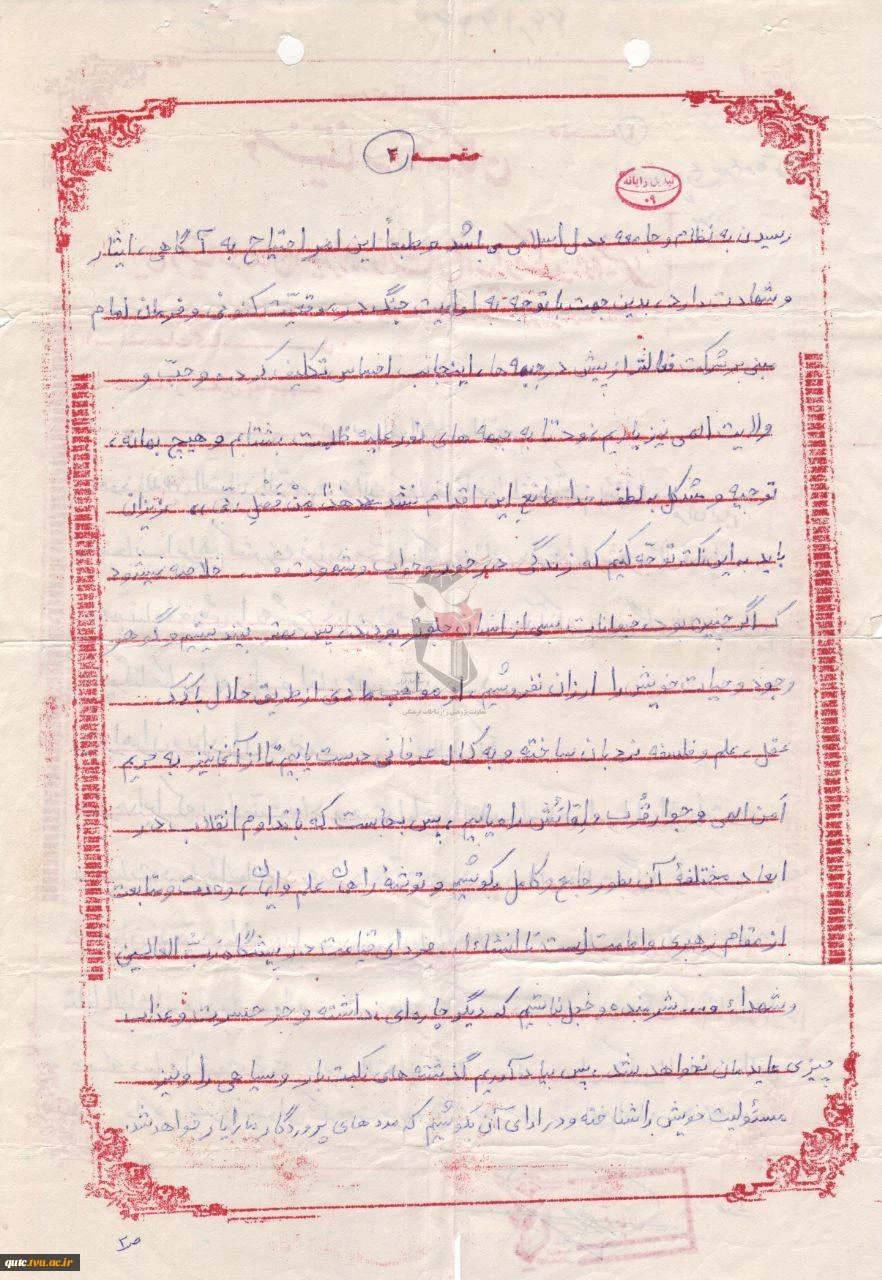 صفحه ۲
تبدیل رایانه
۰۹
رسیدن به نظام و جامعه عدل اسلامی می‌باشد و طبعاً این امر احتیاج به آگاهی، ایثار
و شهادت دارد، بدین جهت با توجه به اولویت جنگ در موقعیّت کنونی و فرمان امام
مبنی بر شرکت فعالتر از پیش در جبهه‌ها، اینجانب احساس تکلیف کرده و حبّ و
ولایت الهی نیز یاریم نمود تا به جبهه‌های نور علیه ظلمت بشتابم و هیچ بهانه،
توجیه و مشکل به لطف خدا مانع این اقدام نشد هذا مِنْ فَضْلِ رَبّی،، عزیزان
باید به این نکته توجّه کنیم که زندگی در خور و خواب و شهوت و ... خلاصه نمیشود
که اگر چنین بود، حیوانات بسی از انسان جلوتر بودند، پس بهتر بیندیشیم و گوهر
وجود و حیات خویش را ارزان نفروشیم، از مواهب مادی از طریق حلال با کمک
عقل، علم و فلسفه نردبان ساخته و به کمال عرفانی دست یابیم تا از آنجا نیز به حریم
اَمن الهی و جوار قُرب و لِقائش راه یابیم، پس بجاست که با تداوم انقلاب در
ابعاد مختلفهٔ آن بطور جامع و کامل بکوشیم و توشهٔ راهمان علم و ایمان، وحدت و متابعت
از مقام رهبری و امامت است تا انشاءا... فردای قیامت در پیشگاه ربّ العالمین
و شهداء و... شرمنده و خجل نباشیم که دیگر چاره‌ای نداشته و جز حسرت و عذاب
چیزی عایدمان نخواهد شد، پس بیاد آوریم گذشته‌های نکبت بار و سیاهی را و نیز
مسئولیت خویش را شناخته و در ادای آن بکوشیم که مددهای پروردگار ما را یار خواهد شد.
معاونت پژوهش و ارتباطات فرهنگی
ص۲
qutc.tvu.ac.ir